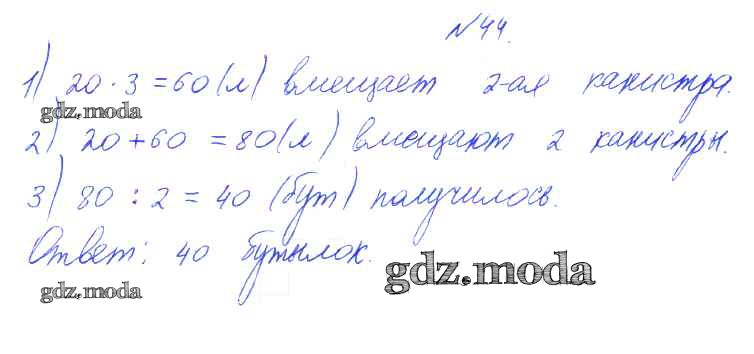 №44.
1) 20 · 3 = 60 (л) вмещает 2-ая канистра.
gdz.moda
2) 20 + 60 = 80 (л) вмещают 2 канистры.
3) 80 : 2 = 40 (бут) получилось.
Ответ: 40 бутылок.
gdz.moda
gdz.moda